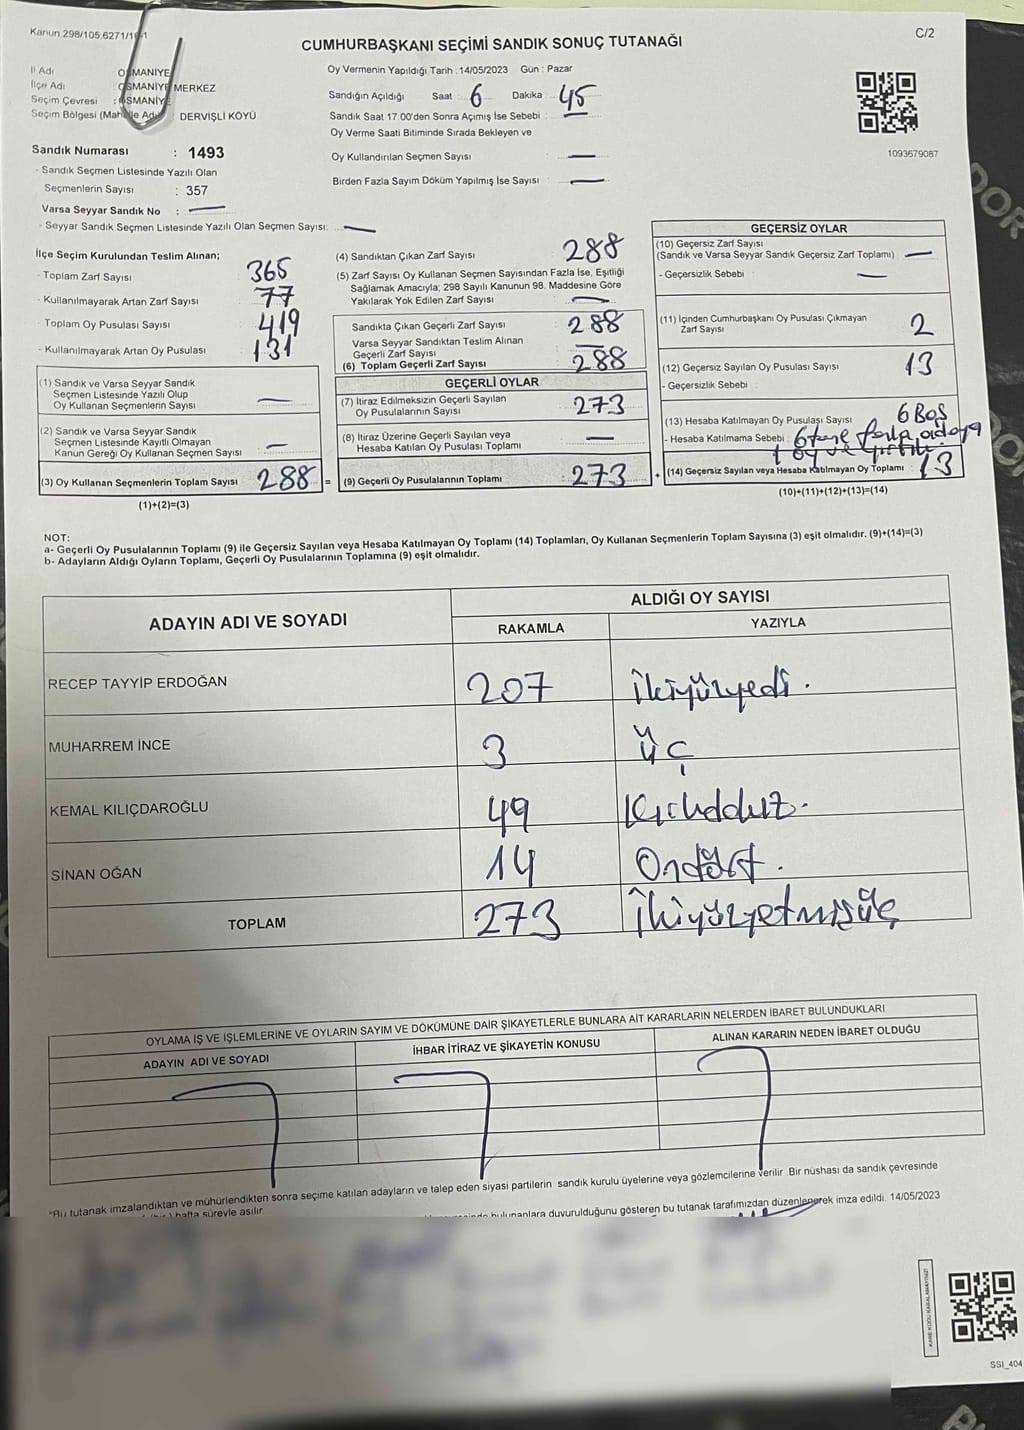 Kanun.298/105,6271/1
C/2
CUMHURBAŞKANI SEÇİMİ SANDIK SONUÇ TUTANAĞI
İl Adı OSMANİYE
İlçe Adı OSMANİYE MERKEZ
Seçim Çevresi : OSMANİYE
Seçim Bölgesi DERVİŞLİ KÖYÜ
Sandık Numarası : 1493
- Sandık Seçmen Listesinde Yazılı Olan
Seçmenlerin Sayısı : 357
Varsa Seyyar Sandık No : —
- Seyyar Sandık Seçmen Listesinde Yazılı Olan Seçmen Sayısı: —
Oy Vermenin Yapıldığı Tarih : 14/05/2023 Gün : Pazar
Sandığın Açıldığı Saat 6 Dakika 45
Sandık Saat 17 00'den Sonra Açımış İse Sebebi :
Oy Verme Saati Bitiminde Sırada Bekleyen ve
Oy Kullandırılan Seçmen Sayısı : —
Birden Fazla Sayım Döküm Yapılmış İse Sayısı : —
1093679087
İlçe Seçim Kurulundan Teslim Alınan;
- Toplam Zarf Sayısı 365
- Kullanılmayarak Artan Zarf Sayısı 77
- Toplam Oy Pusulası Sayısı 419
- Kullanılmayarak Artan Oy Pusulası 131
(1) Sandık ve Varsa Seyyar Sandık
Seçmen Listesinde Yazılı Olup
Oy Kullanan Seçmenlerin Sayısı —
(2) Sandık ve Varsa Seyyar Sandık
Seçmen Listesinde Kayıtlı Olmayan
Kanun Gereği Oy Kullanan Seçmen Sayısı —
(3) Oy Kullanan Seçmenlerin Toplam Sayısı 288 =
(1)+(2)=(3)
(4) Sandıktan Çıkan Zarf Sayısı 288
(5) Zarf Sayısı Oy Kullanan Seçmen Sayısından Fazla İse, Eşitliği
Sağlamak Amacıyla; 298 Sayılı Kanunun 98. Maddesine Göre
Yakılarak Yok Edilen Zarf Sayısı —
Sandıkta Çıkan Geçerli Zarf Sayısı 288
Varsa Seyyar Sandıktan Teslim Alınan
Geçerli Zarf Sayısı —
(6) Toplam Geçerli Zarf Sayısı 288
GEÇERLİ OYLAR
(7) İtiraz Edilmeksizin Geçerli Sayılan
Oy Pusulalarının Sayısı 273
(8) İtiraz Üzerine Geçerli Sayılan veya
Hesaba Katılan Oy Pusulası Toplamı —
(9) Geçerli Oy Pusulalarının Toplamı 273 +
GEÇERSİZ OYLAR
(10) Geçersiz Zarf Sayısı
(Sandık ve Varsa Seyyar Sandık Geçersiz Zarf Toplamı) —
- Geçersizlik Sebebi : —
(11) İçinden Cumhurbaşkanı Oy Pusulası Çıkmayan
Zarf Sayısı 2
(12) Geçersiz Sayılan Oy Pusulası Sayısı 13
- Geçersizlik Sebebi :
(13) Hesaba Katılmayan Oy Pusulası Sayısı 6 Boş
- Hesaba Katılmama Sebebi : 6 tane fazla adaya
1 oy ve
(14) Geçersiz Sayılan veya Hesaba Katılmayan Oy Toplamı : 13
(10)+(11)+(12)+(13)=(14)
NOT:
a- Geçerli Oy Pusulalarının Toplamı (9) ile Geçersiz Sayılan veya Hesaba Katılmayan Oy Toplamı (14) Toplamları, Oy Kullanan Seçmenlerin Toplam Sayısına (3) eşit olmalıdır. (9)+(14)=(3)
b- Adayların Aldığı Oyların Toplamı, Geçerli Oy Pusulalarının Toplamına (9) eşit olmalıdır.
ADAYIN ADI VE SOYADI
ALDIĞI OY SAYISI
RAKAMLA YAZIYLA
RECEP TAYYİP ERDOĞAN 207 ikiyüzyedi.
MUHARREM İNCE 3 üç
KEMAL KILIÇDAROĞLU 49 Kırkdokuz.
SİNAN OĞAN 14 Ondört.
TOPLAM 273 ikiyüzyetmişüç
OYLAMA İŞ VE İŞLEMLERİNE VE OYLARIN SAYIM VE DÖKÜMÜNE DAİR ŞİKAYETLERLE BUNLARA AİT KARARLARIN NELERDEN İBARET BULUNDUKLARI
ADAYIN ADI VE SOYADI
İHBAR İTİRAZ VE ŞİKAYETİN KONUSU
ALINAN KARARIN NEDEN İBARET OLDUĞU
"Bu tutanak imzalandıktan ve mühürlendikten sonra seçime katılan adayların ve talep eden siyasi partilerin sandık kurulu üyelerine veya gözlemcilerine verilir Bir nüshası da sandık çevresinde
hafta süreyle asılır.
bulunanlara duyurulduğunu gösteren bu tutanak tarafımızdan düzenlenerek imza edildi. 14/05/2023
KARE KODU KARALAMAYINIZ!
SSI_404